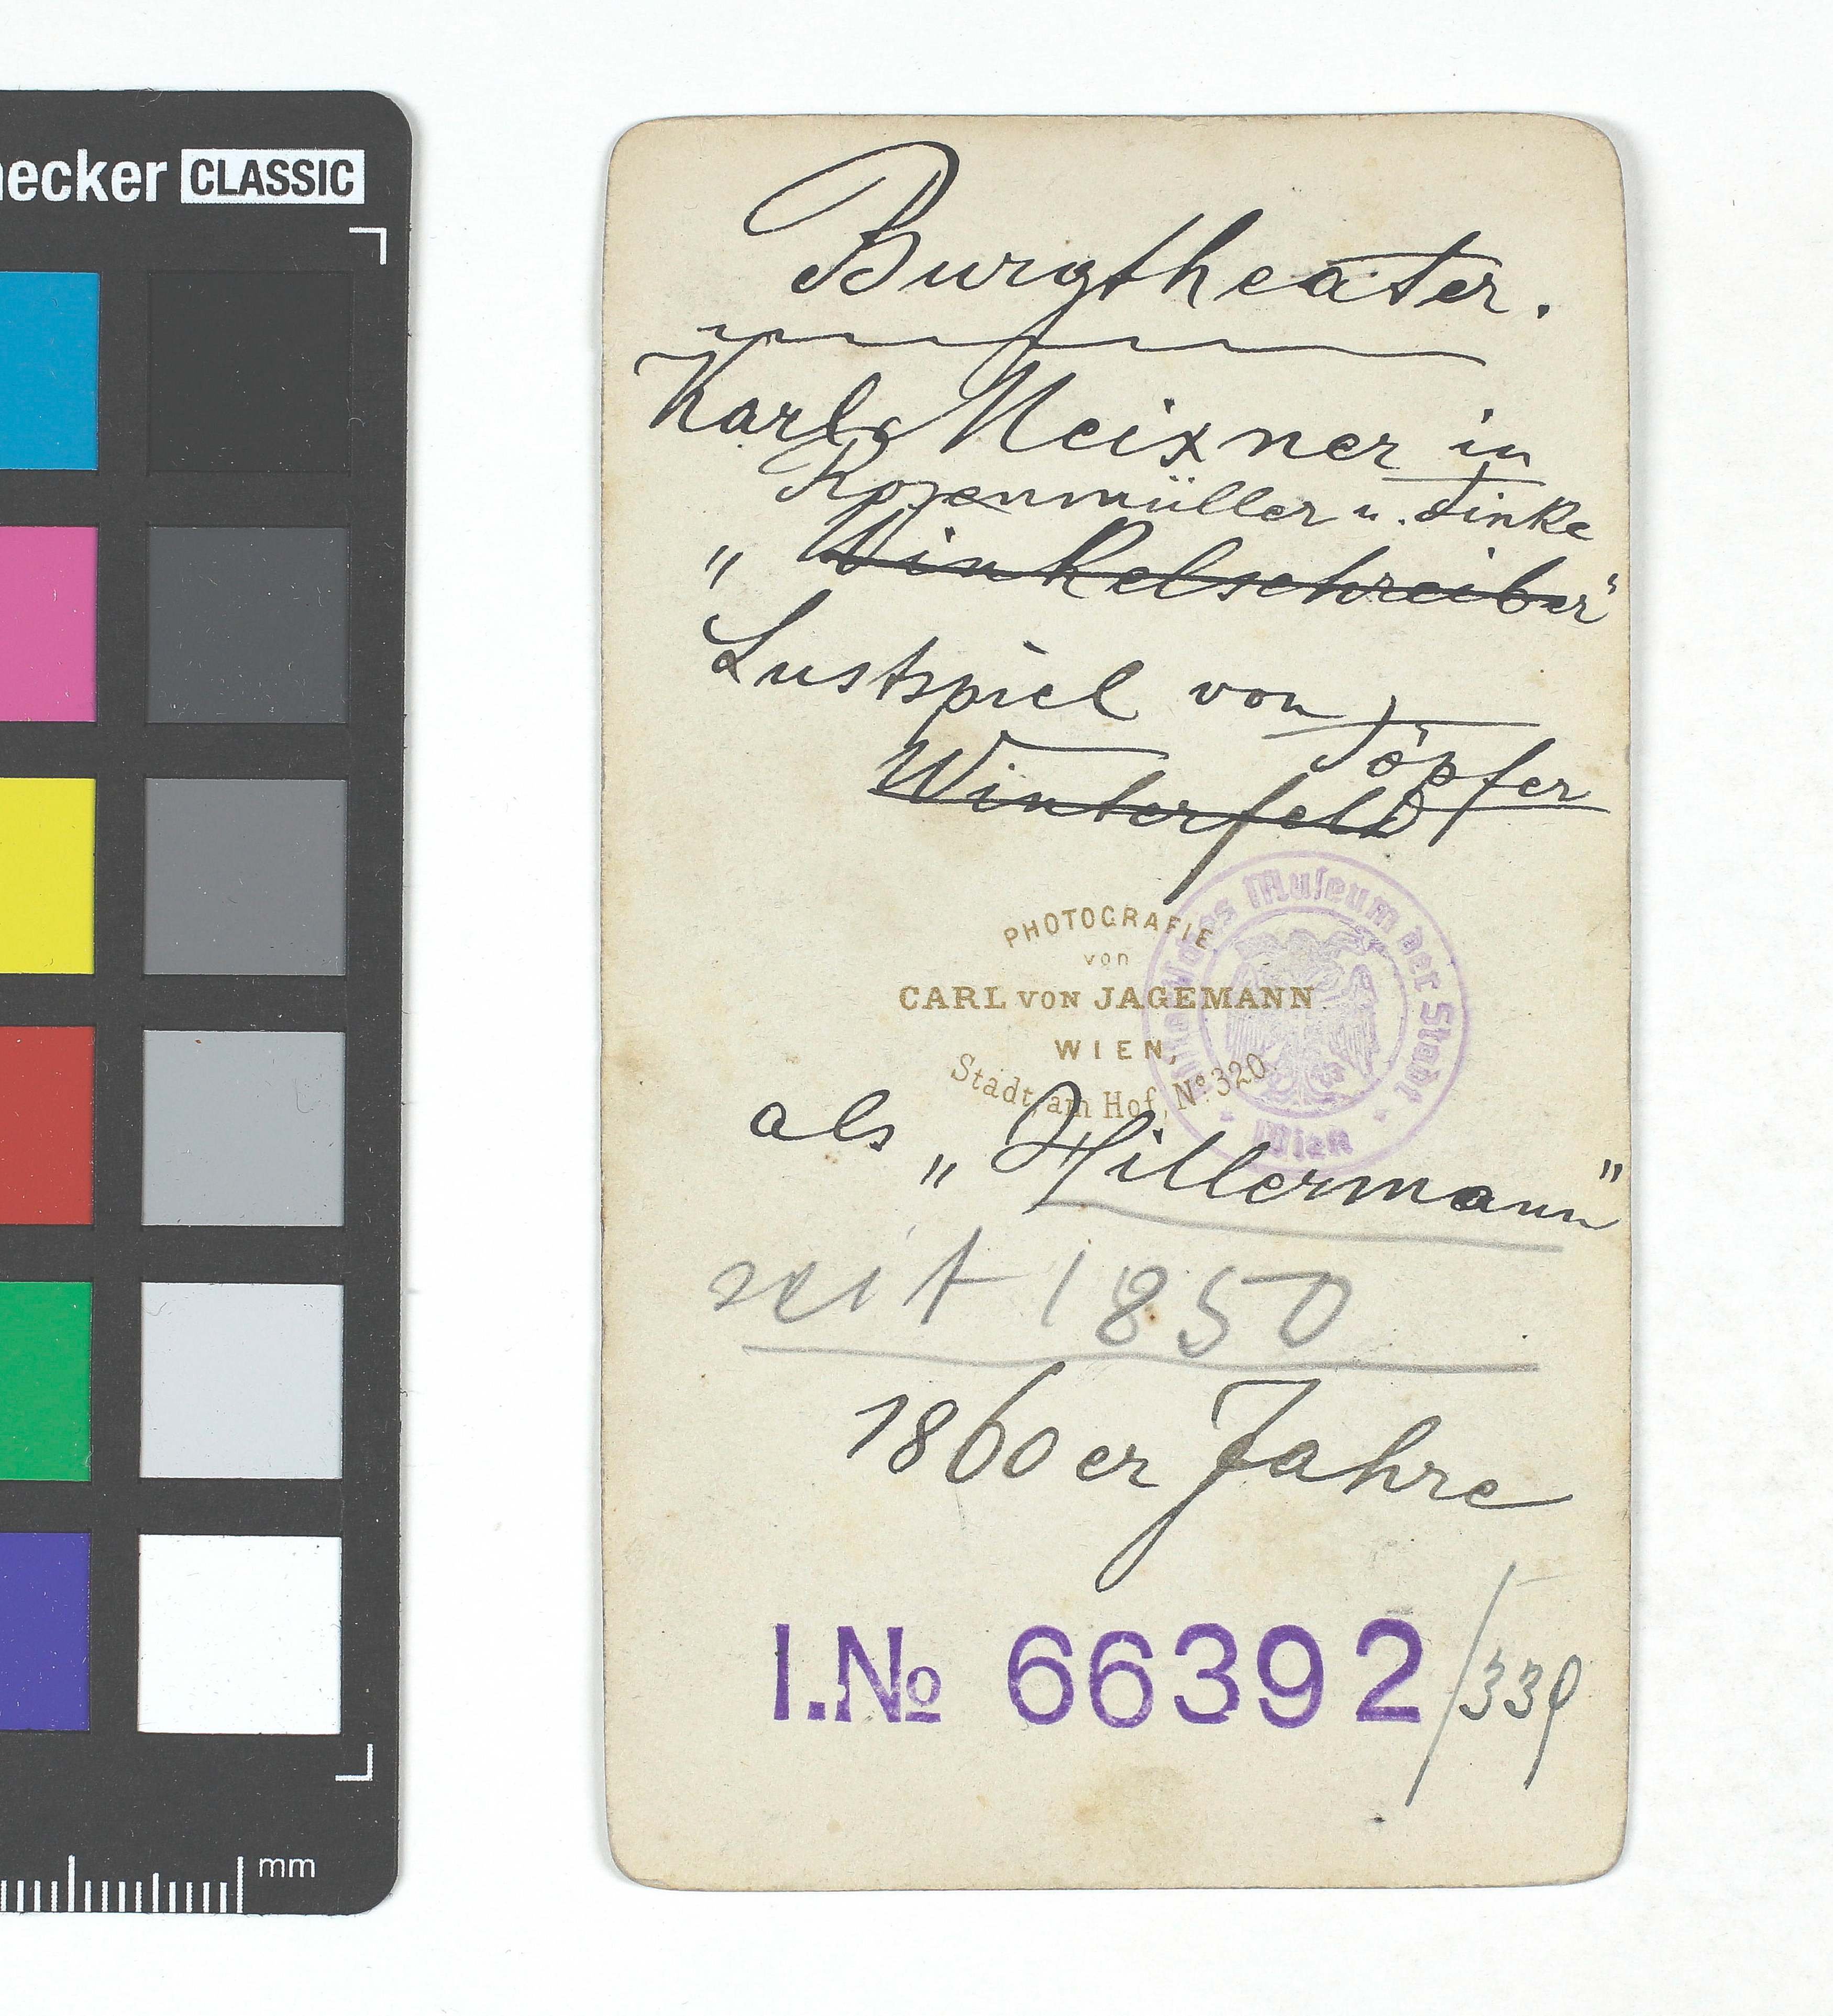 ecker CLASSIC
Burgtheater.
Karl Meixner in
Rosenmüller u. Finke
„Winkelschreiber“
Lustspiel von
Töpfer
Winterfeld
PHOTOGRAFIE
von
CARL VON JAGEMANN
WIEN,
Stadt, am Hof, No. 320
Museum der Stadt
Wien
als „Hillermann“
seit 1850
1860er Jahre
I.No 66392/339
mm